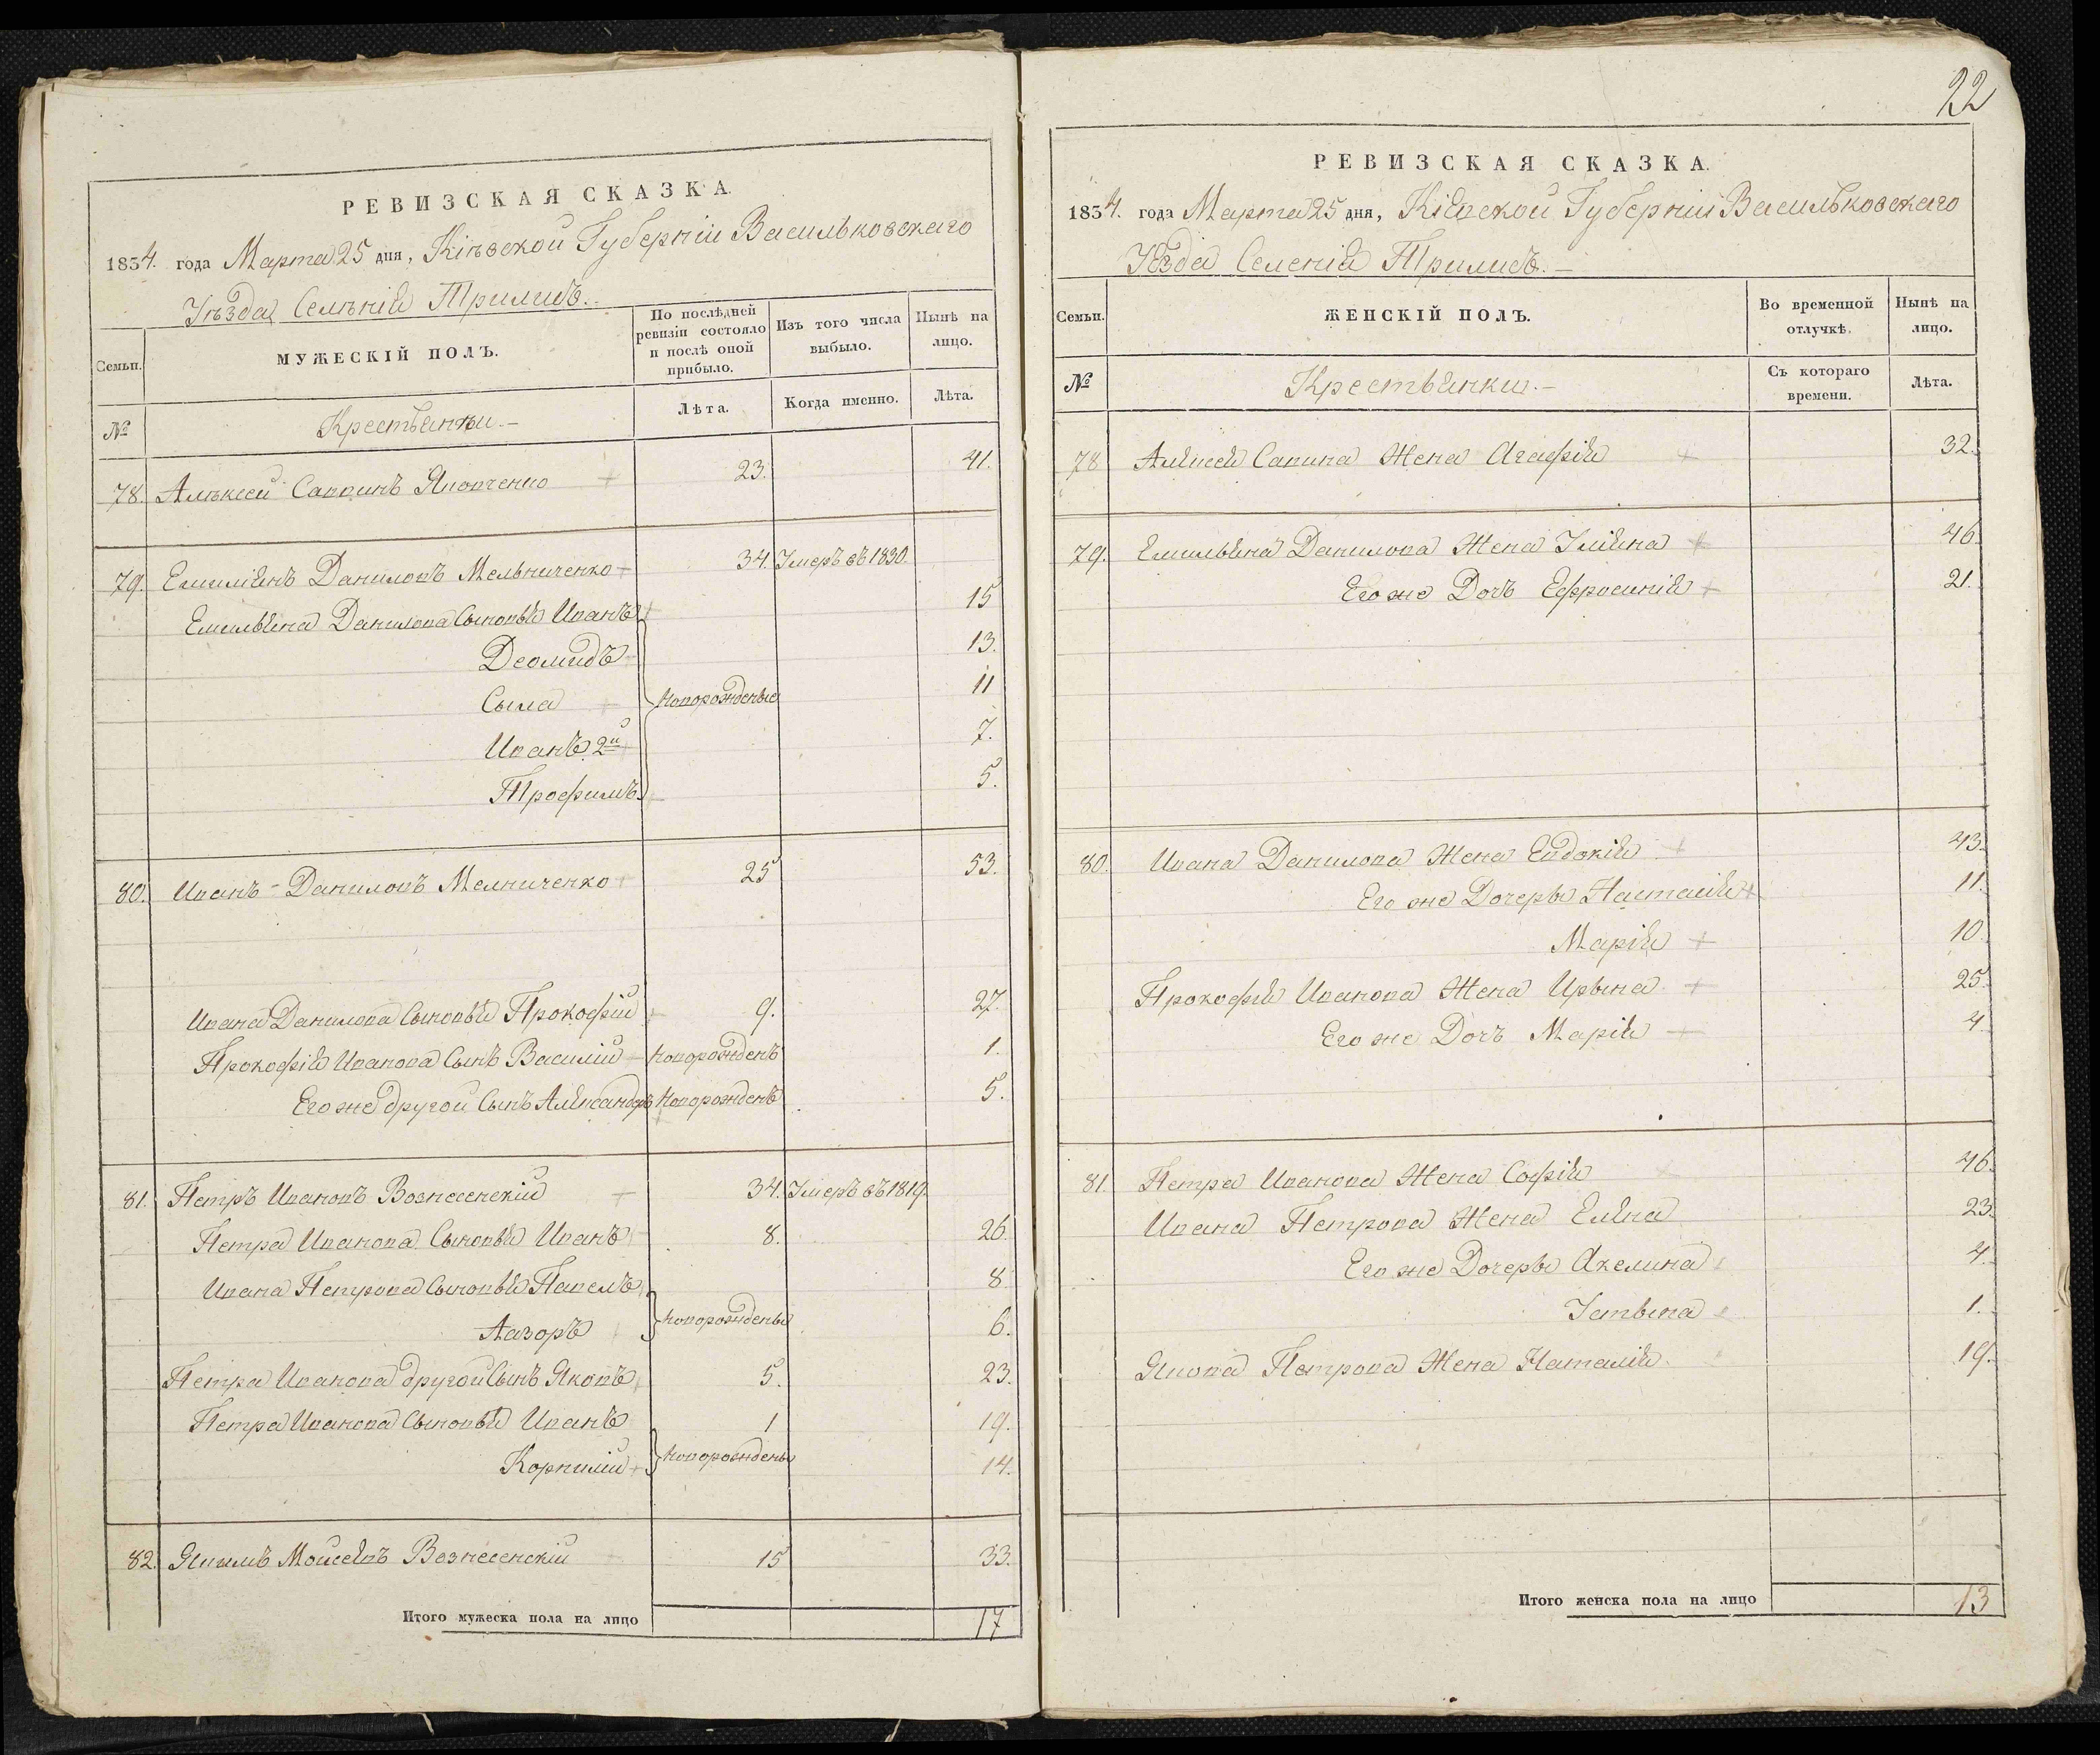 РЕВИЗСКАЯ СКАЗКА.
1834. года Марта 25 дня, Кіевской Губерніи Васильковскаго
Уѣзда Селенія Трилисъ.-
Семьи.
МУЖЕСКІЙ ПОЛЪ.
По послѣдней ревизіи состояло и послѣ оной прибыло.
Изъ того числа выбыло.
Нынѣ на лицо.
№
Крестьянъи.-
Лѣта.
Когда именно.
Лѣта.
78. Алѣксей Саввинъ Яковченко 23. 41.
79. Емилиянъ Даниловъ Мельниченко 34. Умеръ въ 1830.
Емильяна Данилова Сыновья Иванъ 15
Деомидъ 13.
Сыла Новорожденые 11
Иванъ 2й 7.
Трофимъ 5.
80. Иванъ - Даниловъ Мелниченко 25 53.
Ивана Данилова Сыновья Прокофій 9. 27.
Прокофія Иванова Сынъ Василій Новорожденъ 1.
Его же другой Сынъ Александръ Новорожденъ 5.
81. Петръ Ивановъ Вознесенскій 34. Умеръ въ 1819.
Петра Иванова Сыновья Иванъ 8. 26.
Ивана Петрова Сыновья Павелъ 8.
Лазоръ Новорожденые 6.
Петра Иванова другой Сынъ Яковъ 5. 23.
Петра Иванова Сыновья Иванъ 1 19.
Корнилій Новорождены 14.
82. Якимъ Моисеевъ Вознесенскій 15 33.
Итого мужеска пола на лицо 17
22
РЕВИЗСКАЯ СКАЗКА.
1834. года Марта 25 дня, Кіевской Губерніи Васильковскаго
Уѣзда Селенія Трилисъ.-
Семьи.
ЖЕНСКІЙ ПОЛЪ.
Во временной отлучкѣ.
Нынѣ на лицо.
№
Крестьянки.-
Съ котораго времени.
Лѣта.
78 Алексея Савина Жена Агафія 32.
79. Емильяна Данилова Жена Уліяна 46.
Его же Дочъ Ефросинія 21.
80. Ивана Данилова Жена Евдокія 43.
Его же Дочеры Настасія 11.
Марія 10.
Прокофія Иванова Жена Ирына 25.
Его же Дочъ Марія 4.
81. Петра Иванова Жена Софія 46.
Ивана Петрова Жена Елена 23.
Его же Дочеры Акелина 4.
Устына 1.
Якова Петрова Жена Наталія 19.
Итого женска пола на лицо 13